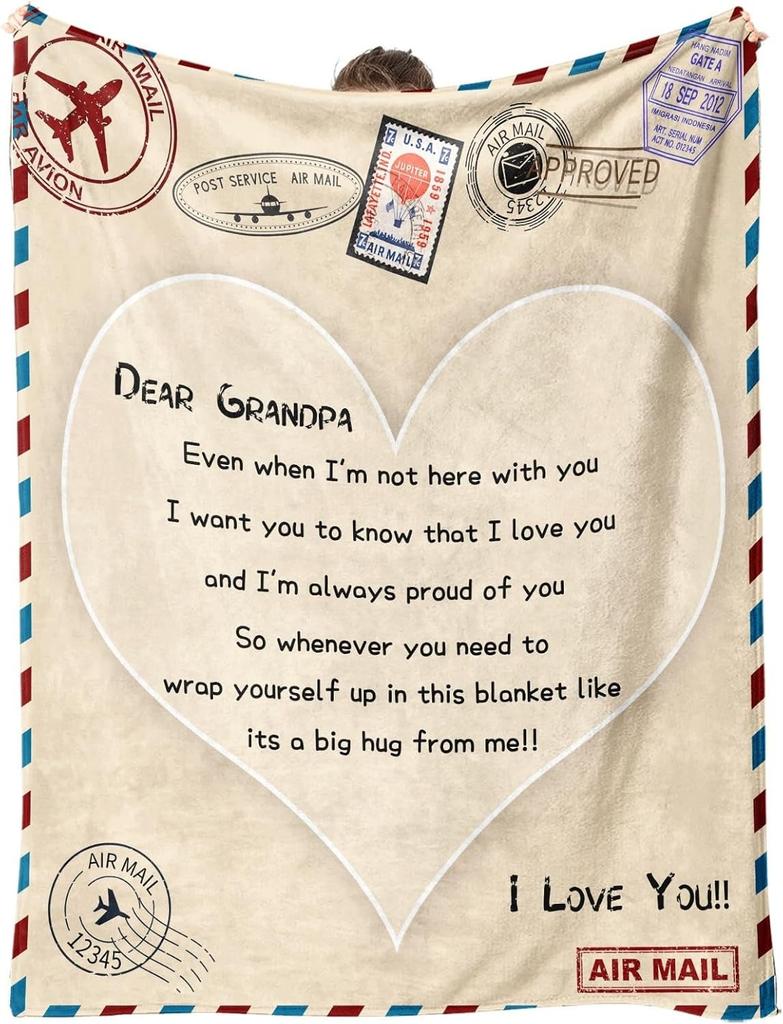 AIR MAIL
PAR AVION
POST SERVICE AIR MAIL
U.S.A.
JUPITER
LAFAYETTE, IND.
1859 ★ 1959
AIR MAIL
AIR MAIL
12345
APPROVED
HANG NADIM
GATE A
KEDATANGAN ARRIVAL
18 SEP 2012
IMIGRASI INDONESIA
ART. SERIAL NUM
ACT NO. 012345
DEAR GRANDPA
Even when I'm not here with you
I want you to know that I love you
and I'm always proud of you
So whenever you need to
wrap yourself up in this blanket like
its a big hug from me!!
I LOVE YOU!!
AIR MAIL
12345
AIR MAIL